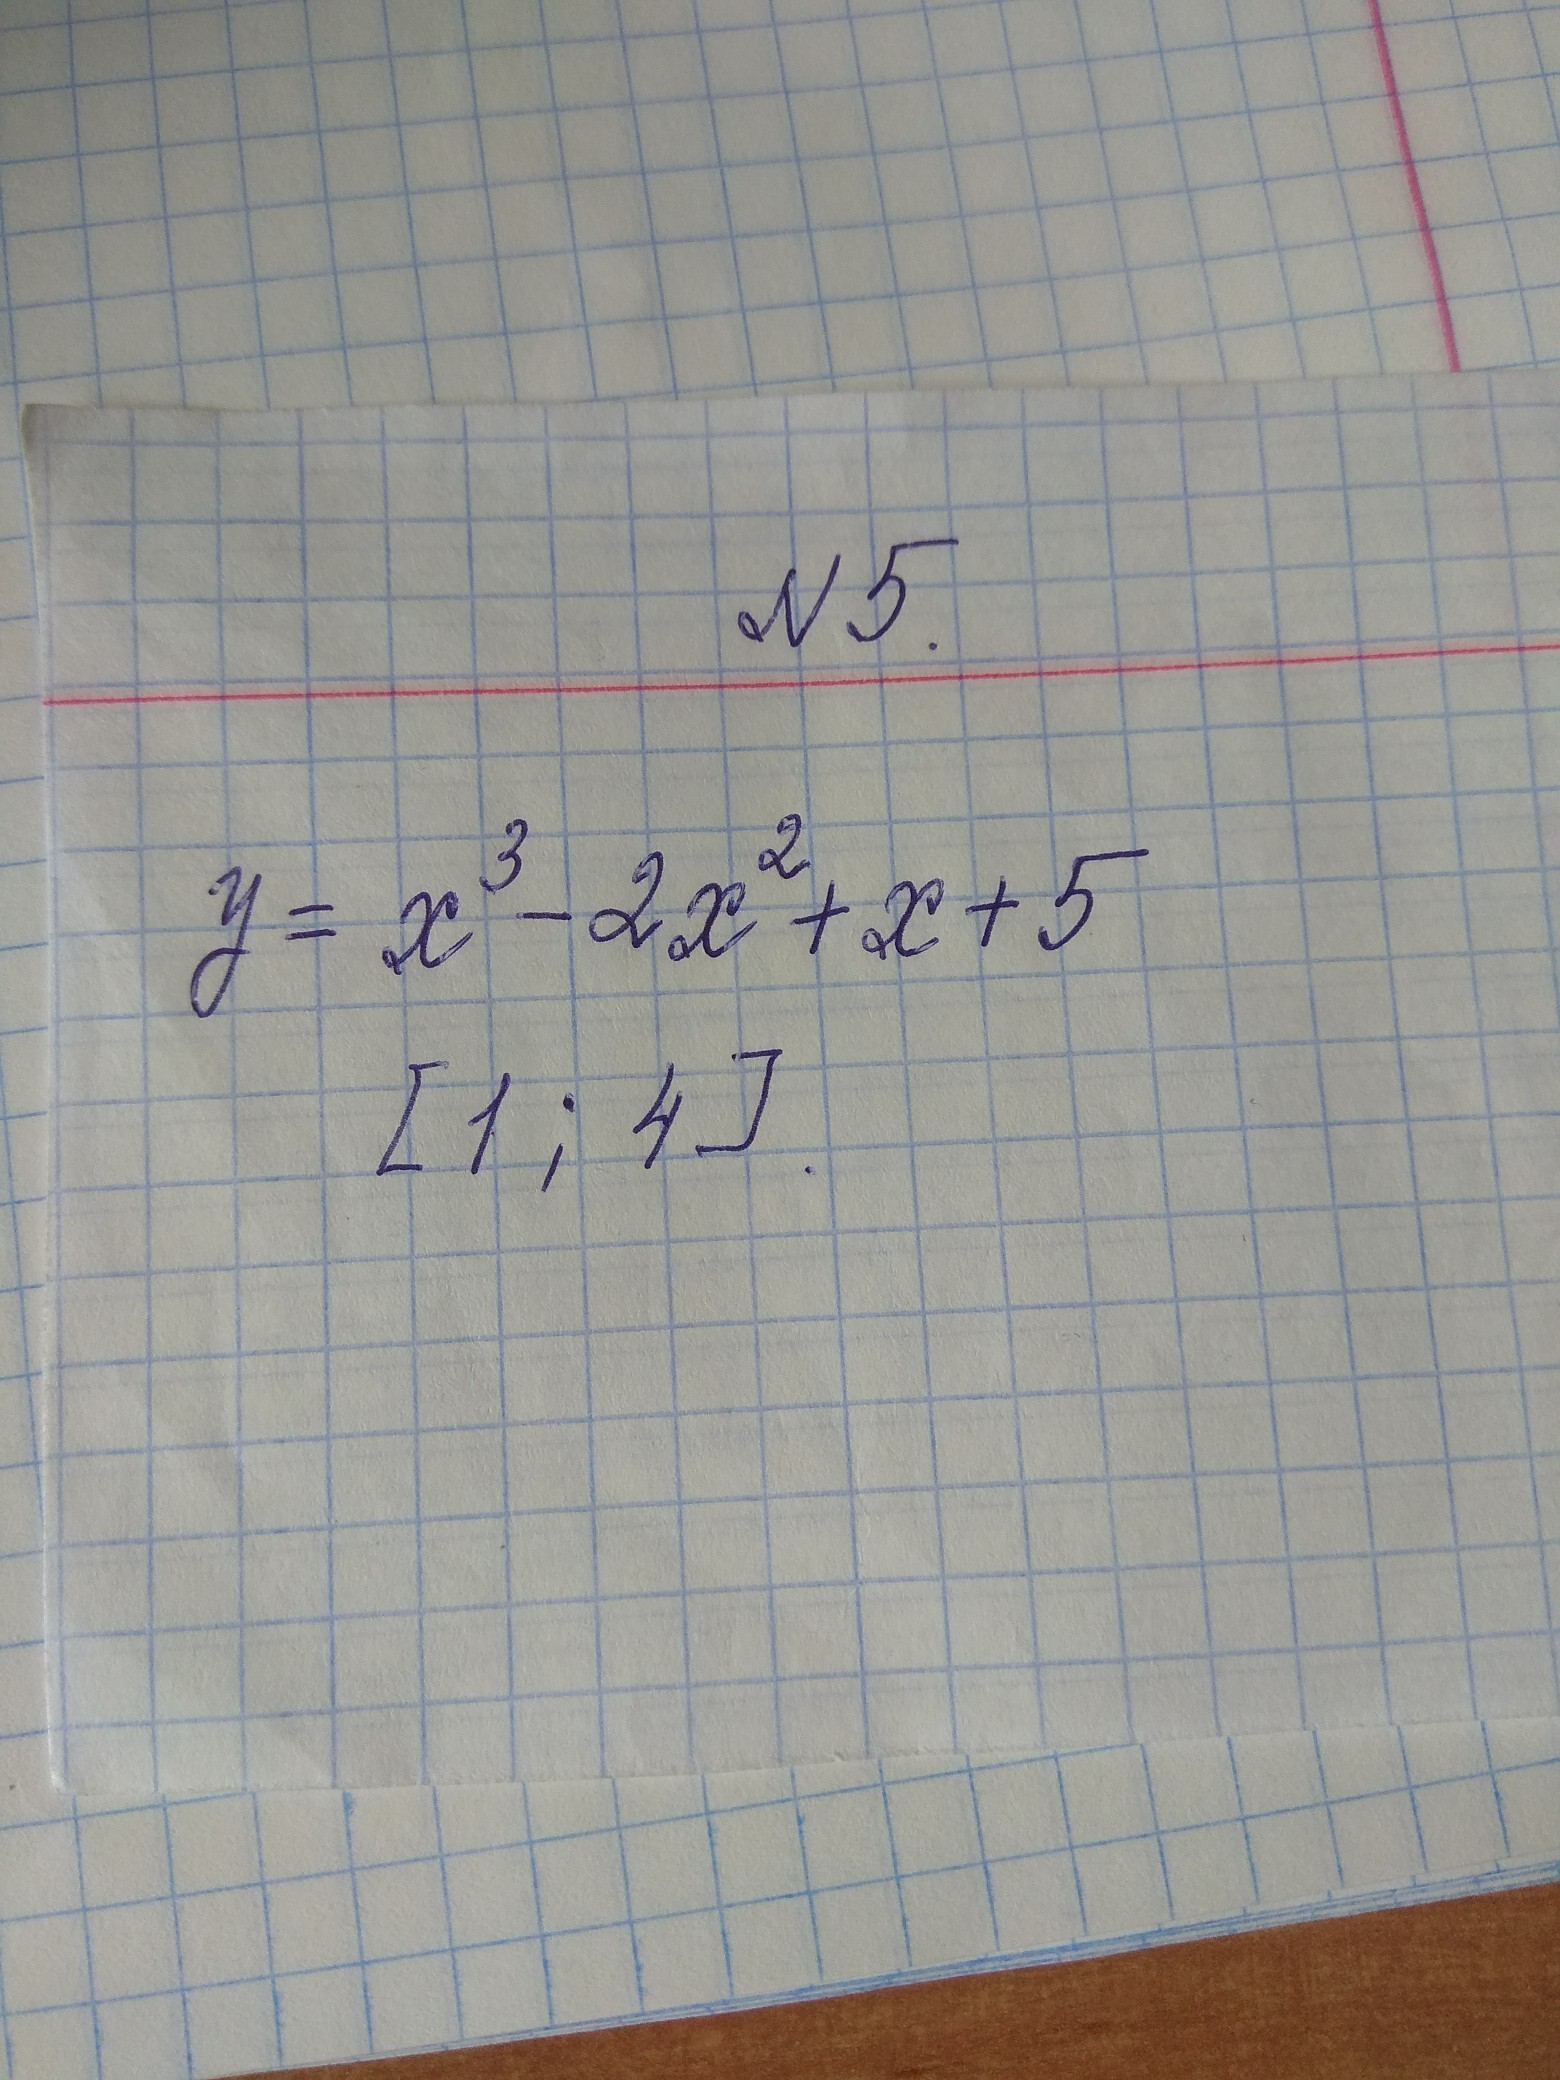 N 5.
y = x³ - 2x² + x + 5
[1; 4].